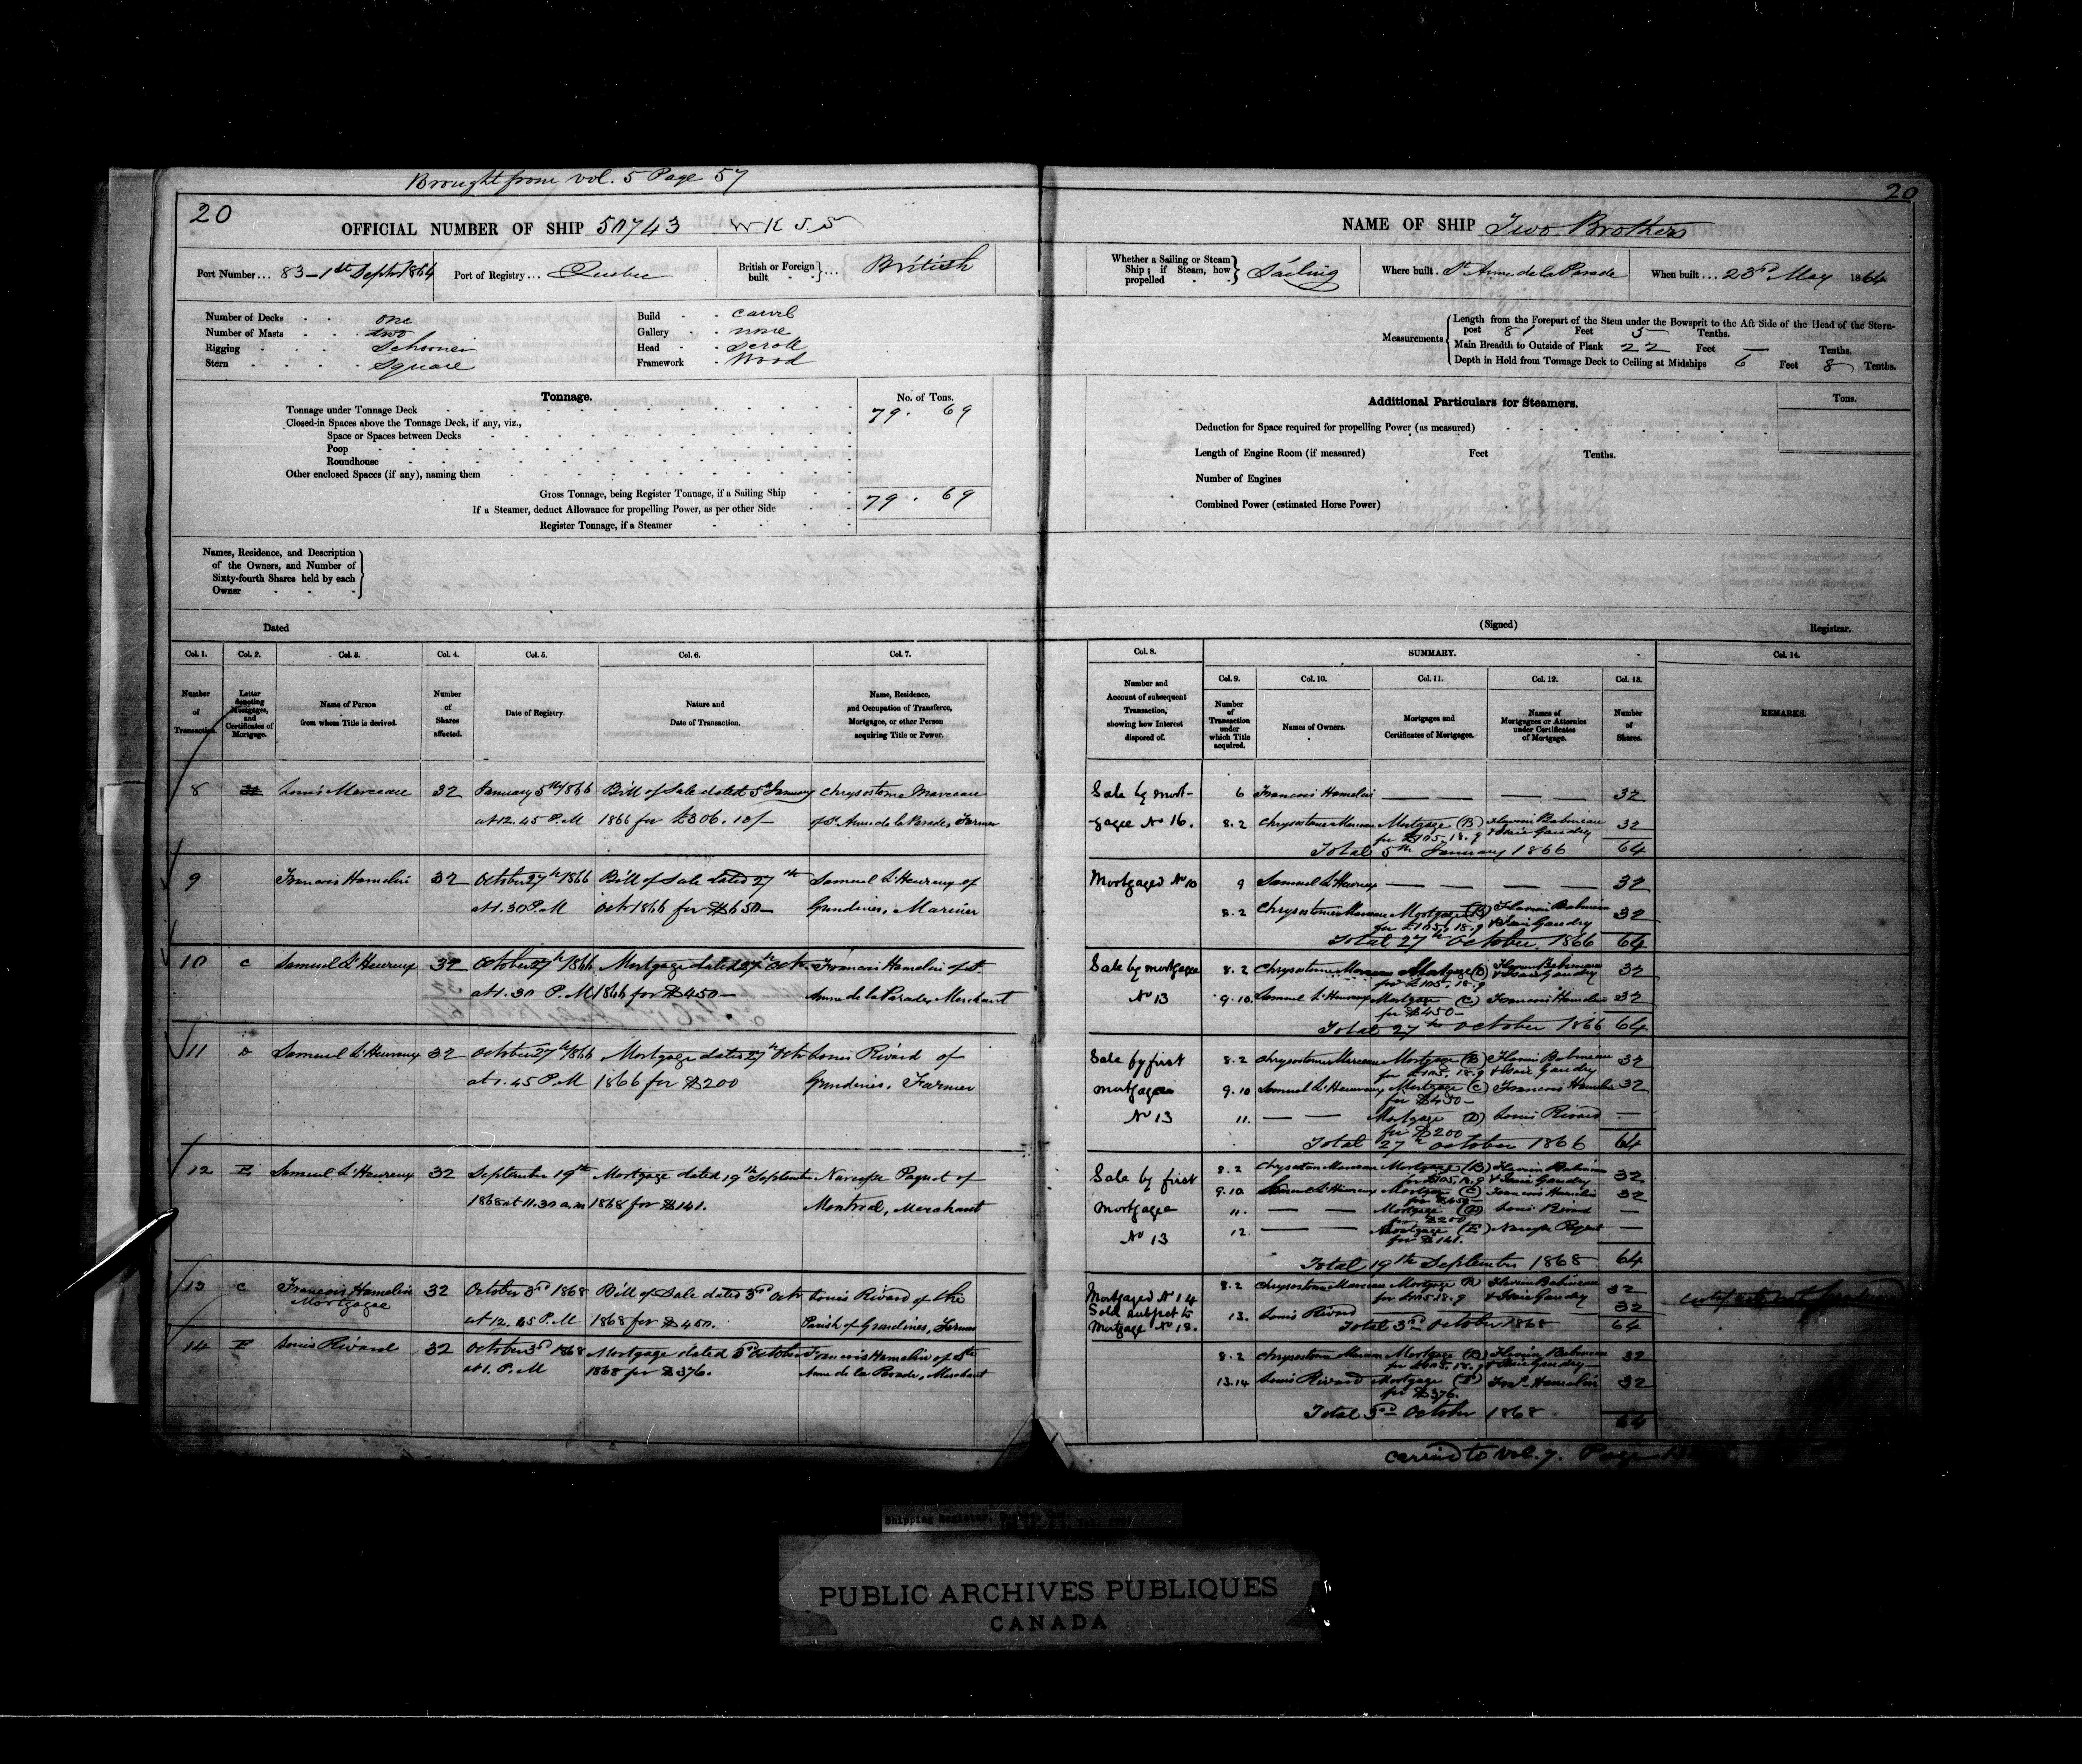 Brought from vol. 5 Page 57
20
20
OFFICIAL NUMBER OF SHIP 50743 W K J. S
NAME OF SHIP Two Brothers
Port Number... 83 - 1st Septr 1864
Port of Registry... Quebec
British or Foreign built ... British
Whether a Sailing or Steam Ship; if Steam, how propelled Sailing
Where built. St Anne de la Parade
When built... 23rd May 1864
Number of Decks one
Number of Masts two
Rigging Schooner
Stern Square
Build carvel
Gallery none
Head scroll
Framework Wood
Measurements
Length from the Forepart of the Stem under the Bowsprit to the Aft Side of the Head of the Stern-
post 81 Feet 5 Tenths.
Main Breadth to Outside of Plank 22 Feet — Tenths.
Depth in Hold from Tonnage Deck to Ceiling at Midships 6 Feet 8 Tenths.
Tonnage.
No. of Tons.
Tonnage under Tonnage Deck 79. 69
Closed-in Spaces above the Tonnage Deck, if any, viz.,
Space or Spaces between Decks
Poop
Roundhouse
Other enclosed Spaces (if any), naming them
Gross Tonnage, being Register Tonnage, if a Sailing Ship 79. 69
If a Steamer, deduct Allowance for propelling Power, as per other Side
Register Tonnage, if a Steamer
Additional Particulars for Steamers.
Tons.
Deduction for Space required for propelling Power (as measured)
Length of Engine Room (if measured) Feet Tenths.
Number of Engines
Combined Power (estimated Horse Power)
Names, Residence, and Description
of the Owners, and Number of
Sixty-fourth Shares held by each
Owner
Dated
(Signed)
Registrar.
Col. 1. Col. 2. Col. 3. Col. 4. Col. 5. Col. 6. Col. 7.
Number of Transaction.
Letter denoting Mortgages, and Certificates of Mortgage.
Name of Person from whom Title is derived.
Number of Shares affected.
Date of Registry.
Nature and Date of Transaction.
Name, Residence, and Occupation of Transferee, Mortgagee, or other Person acquiring Title or Power.
Col. 8.
Number and Account of subsequent Transaction, showing how Interest disposed of.
SUMMARY.
Col. 9. Col. 10. Col. 11. Col. 12. Col. 13.
Number of Transaction under which Title acquired.
Names of Owners.
Mortgages and Certificates of Mortgages.
Names of Mortgagees or Attornies under Certificates of Mortgage.
Number of Shares.
Col. 14.
REMARKS.
8 Louis Marceau 32 January 5th 1866 Bill of Sale dated 5th January Chrysostome Marceau
at 12. 45 P.M 1866 for £306. 10/- of St Anne de la Parade, Farmer
Sale by mort-
gagee No 16.
6 Francois Hamelin — — — — 32
8.2 Chrysostome Marceau Mortgage (B) Flavien Babineau 32
for £105. 18. 9 & Isaie Gaudry
Total 5th January 1866 64
9 Francois Hamelin 32 October 27th 1866 Bill of Sale dated 27th Samuel L'Heureux of
at 1. 30 P.M Octr 1866 for $650— Grondines, Mariner
Mortgaged No 10
9 Samuel L'Heureux — — — — 32
8.2 Chrysostome Marceau Mortgage (B) Flavien Babineau 32
for £105. 18. 9 & Isaie Gaudry
Total 27th October 1866 64
10 C Samuel L'Heureux 32 October 27th 1866 Mortgage dated 27th Octr Francois Hamelin of St
at 1. 30 P.M 1866 for $450— Anne de la Parade, Merchant
Sale by mortgagee
No 13
8.2 Chrysostome Marceau Mortgage (B) Flavien Babineau 32
for £105. 18. 9 & Isaie Gaudry
9.10 Samuel L'Heureux Mortgage (C) Francois Hamelin 32
for $450—
Total 27th October 1866 64
11 D Samuel L'Heureux 32 October 27th 1866 Mortgage dated 27th Octr Louis Rivard of
at 1. 45 P.M 1866 for $200 Grondines, Farmer
Sale by first
mortgagee
No 13
8.2 Chrysostome Marceau Mortgage (B) Flavien Babineau 32
for £105. 18. 9 & Isaie Gaudry
9.10 Samuel L'Heureux Mortgage (C) Francois Hamelin 32
for $450—
11. — — Mortgage (D) Louis Rivard —
for $200
Total 27th October 1866 64
12 E Samuel L'Heureux 32 September 19th Mortgage dated 19th September Narcisse Paquet of
1868 at 11.30 a.m 1868 for $141. Montreal, Merchant
Sale by first
mortgagee
No 13
8.2 Chrysostome Marceau Mortgage (B) Flavien Babineau 32
for £105. 18. 9 & Isaie Gaudry
9.10 Samuel L'Heureux Mortgage (C) Francois Hamelin 32
for $450—
11. — — Mortgage (D) Louis Rivard —
for $200
12. — — Mortgage (E) Narcisse Paquet —
for $141.
Total 19th September 1868 64
13 C Francois Hamelin 32 October 3rd 1868 Bill of Sale dated 3rd Octr Louis Rivard of the
Mortgagee at 12. 45 P.M 1868 for $450. Parish of Grondines, Farmer
Mortgaged No 14
Sold subject to
Mortgage No 18.
8.2 Chrysostome Marceau Mortgage (B) Flavien Babineau 32
for £105. 18. 9 & Isaie Gaudry
13. Louis Rivard 32
Total 3rd October 1868 64
certificate not
14 F Louis Rivard 32 October 3rd 1868 Mortgage dated 3rd October Francois Hamelin of Ste
at 1. P.M 1868 for $376. Anne de la Parade, Merchant
8.2 Chrysostome Marceau Mortgage (B) Flavien Babineau 32
for £105. 18. 9 & Isaie Gaudry
13.14 Louis Rivard Mortgage (F) Frs Hamelin 32
for $376.
Total 3rd October 1868 64
carried to vol. 7. Page
Shipping Register,
PUBLIC ARCHIVES PUBLIQUES
CANADA